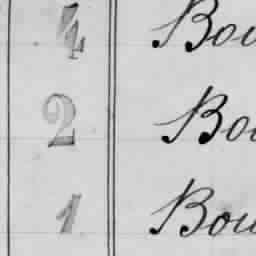 4 Bou
2 Bou
1 Bou